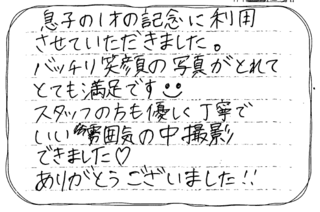 息子の1才の記念に利用
させていただきました。
バッチリ笑顔の写真がとれて
とても満足です
スタッフの方も優しく丁寧で
いい雰囲気の中撮影
できました♡
ありがとうございました!!